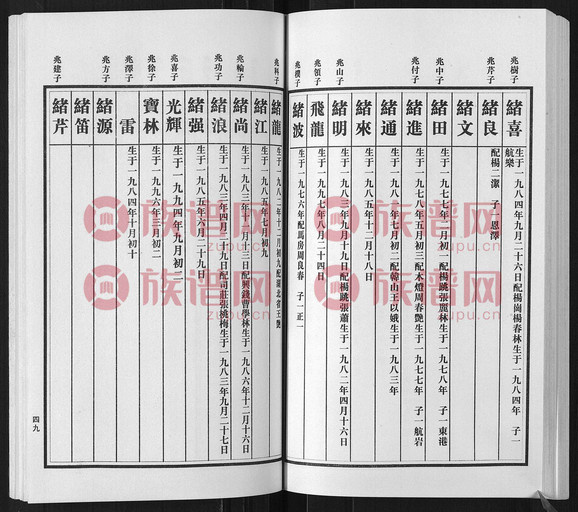 兆樹子
緒喜
生于一九八四年九月二十六日配楊崗楊春林生于一九八四年 子一
航樂
兆芹子
緒良
配楊二潔 子一恩澤
緒文
兆中子
緒田
生于一九七七年二月初一配楊跳張麗林生于一九七八年 子一東港
兆付子
緒進
生于一九七八年五月初三配木燈周春艷生于一九七七年 子一航岩
緒通
生于一九八一年七月初二配韓山王以娥生于一九八三年
緒來
生于一九八五年十二月十八日
兆山子
緒明
生于一九八三年九月十九日配楊跳張蕭生于一九八二年四月十六日
兆領子
飛龍
生于一九九七年八月二十四日
兆樸子
緒波
生于一九七六年配馬房周良春 子一正一
兆科子
緒龍
生于一九八二年十二月初九配湖北省王艷
緒江
生于一九八五年七月初九
兆輪子
緒尚
生于一九八三年十一月十三日配興錢曹學林生于一九八六年十二月十六日
兆功子
緒浪
生于一九八三年四月二十九日配司莊張桃梅生于一九八三年九月二十七日
緒强
生于一九八五年六月二十九日
兆喜子
光輝
生于一九九四年九月初二
兆徐子
寶林
生于一九九六年三月初二
兆澤子
雷
生于一九八四年十月初十
兆方子
緒源
緒笛
兆建子
緒芹
四九
族谱网
zupu.cn
族谱网
zupu.cn
族谱网
zupu.cn
族谱网
zupu.cn